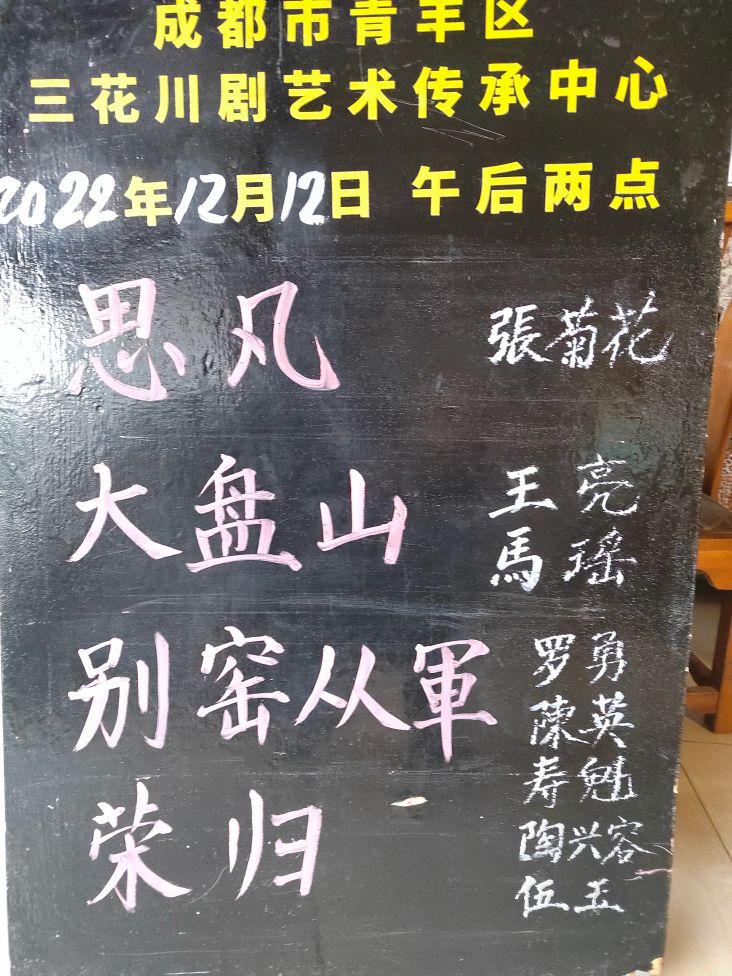 成都市青羊区
三花川剧艺术传承中心
2022年12月12日 午后两点
思凡 張菊花
大盘山 王亮
馬瑶
别窑从軍 罗勇
陳英
寿魁
荣归 陶兴容
伍玉